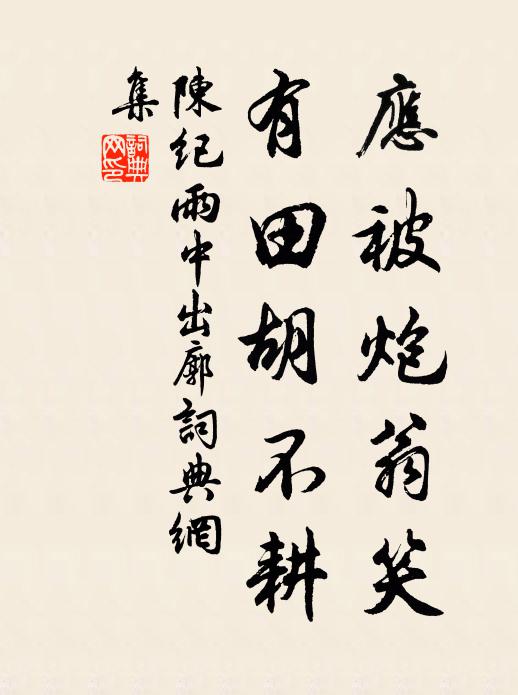 應被炮翁笑
有田胡不耕
陳紀雨中出廓詞典網
集
詞典
网印